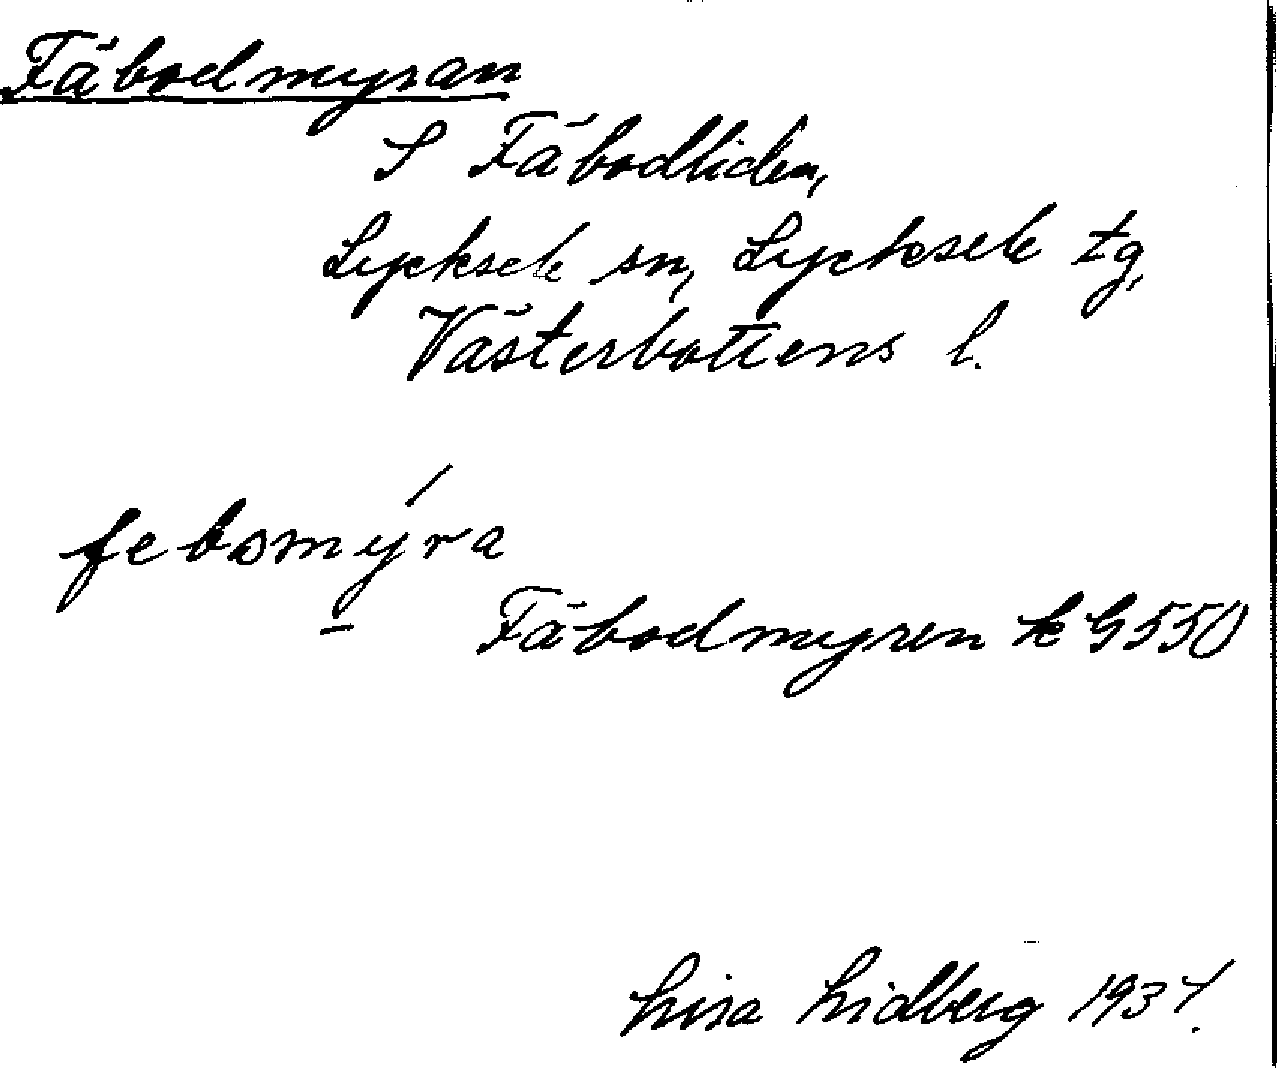 Fäbodmyran
S Fäbodliden,
Lycksele sn, Lycksele tg,
Västerbottens l.
febomýra
Fäbodmyren k G550
Lisa Lidberg 1934.